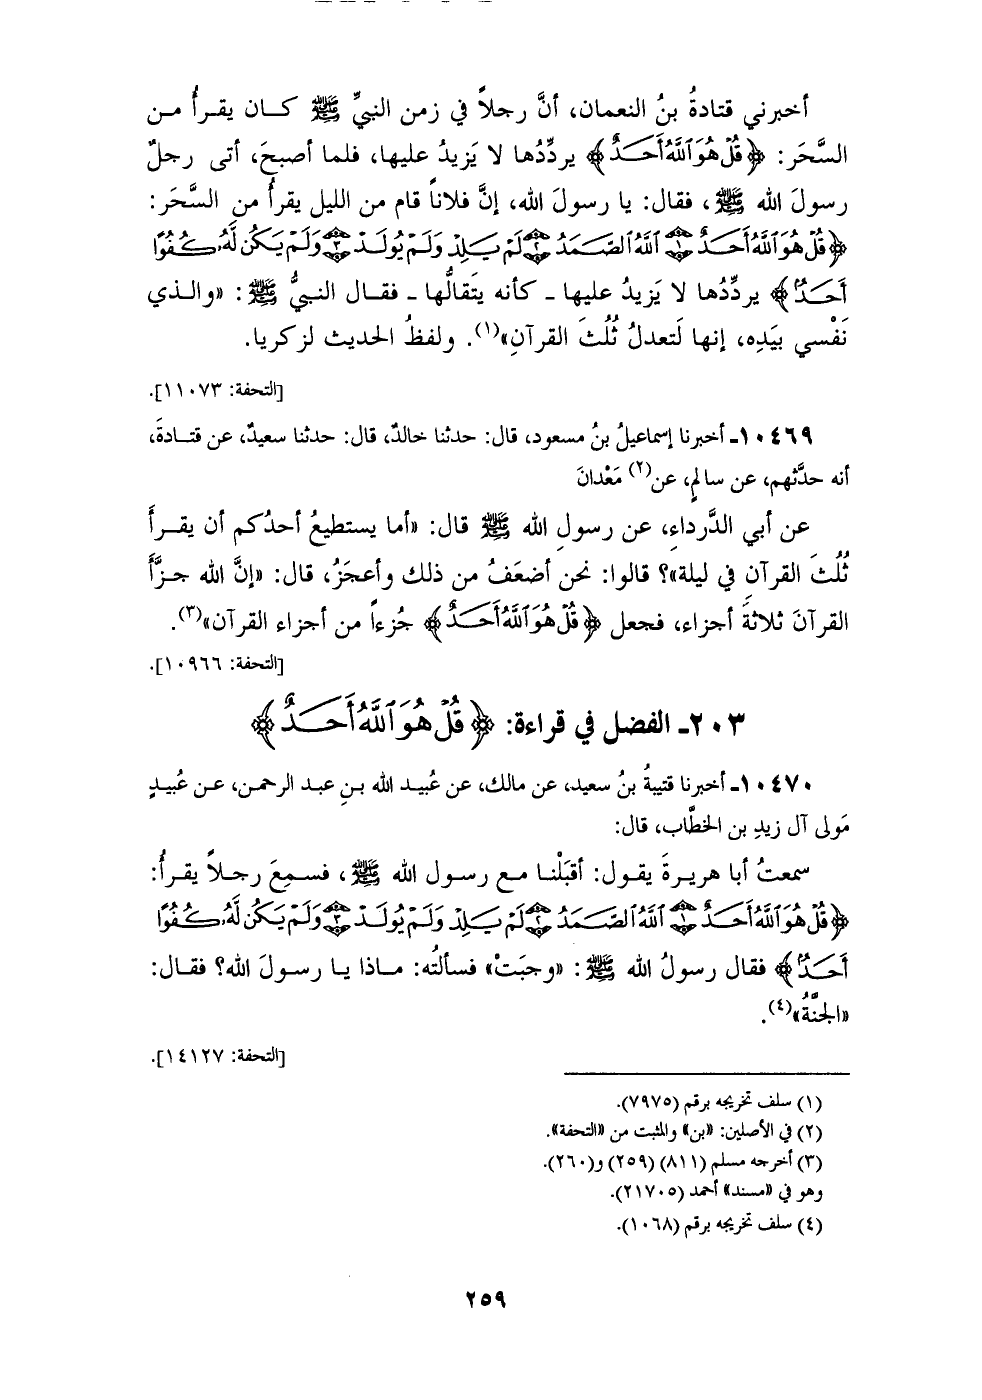 أخبرني قتادةُ بنُ النعمان، أنَّ رجلاً في زمن النبيِّ ﷺ كـان يقـرأُ مـن
السَّحَر: ﴿قُلْ هُوَ ٱللَّهُ أَحَدٌ﴾ يردِّدُها لا يَزيدُ عليها، فلما أصبحَ، أتى رجلٌ
رسولَ الله ﷺ، فقال: يا رسولَ الله، إنَّ فلاناً قام من الليل يقرأُ من السَّحَر:
﴿قُلْ هُوَ ٱللَّهُ أَحَدٌ ۝١ ٱللَّهُ ٱلصَّمَدُ ۝٢ لَمْ يَلِدْ وَلَمْ يُولَدْ ۝٣ وَلَمْ يَكُن لَّهُۥ كُفُوًا
أَحَدٌ﴾ يردِّدُها لا يَزيدُ عليها ـ كأنه يتَقالُّها ـ فقـال النبيُّ ﷺ: «والـذي
نَفْسي بيَدِه، إنها لَتعدلُ ثُلُثَ القرآنِ»(١). ولفظُ الحديث لزكريا.
[التحفة: ١١٠٧٣].
١٠٤٦٩ـ أخبرنا إسماعيلُ بنُ مسعود، قال: حدثنا خالدٌ، قال: حدثنا سعيدٌ، عن قتـادةَ،
أنه حدَّثهم، عن سالمٍ، عن(٢) مَعْدانَ
عن أبي الدَّرداءِ، عن رسولِ الله ﷺ قال: «أما يستطيعُ أحدُكم أن يقـرأَ
ثُلُثَ القرآنِ في ليلة»؟ قالوا: نحن أضعَفُ من ذلك وأعجَزُ، قال: «إنَّ الله جـزَّأَ
القرآنَ ثلاثةَ أجزاء، فجعل ﴿قُلْ هُوَ ٱللَّهُ أَحَدٌ﴾ جُزءاً من أجزاء القرآن»(٣).
[التحفة: ١٠٩٦٦].
٢٠٣ـ الفضل في قراءة: ﴿قُلْ هُوَ ٱللَّهُ أَحَدٌ﴾
١٠٤٧٠ـ أخبرنا قتيبةُ بنُ سعيد، عن مالك، عن عُبيـد الله بـنِ عبد الرحمـن، عـن عُبيـدٍ
مَولى آل زيدِ بن الخطَّاب، قال:
سمعتُ أبا هريـرةَ يقـول: أقبَلْنـا مـع رسـول الله ﷺ، فسـمِعَ رجـلاً يقـرأُ:
﴿قُلْ هُوَ ٱللَّهُ أَحَدٌ ۝١ ٱللَّهُ ٱلصَّمَدُ ۝٢ لَمْ يَلِدْ وَلَمْ يُولَدْ ۝٣ وَلَمْ يَكُن لَّهُۥ كُفُوًا
أَحَدٌ﴾ فقال رسولُ الله ﷺ: «وجبَتْ» فسألتُه: مـاذا يـا رسـولَ الله؟ فقـال:
«الجنَّةُ»(٤).
[التحفة: ١٤١٢٧].
(١) سلف تخريجه برقم (٧٩٧٥).
(٢) في الأصلين: «بن» والمثبت من «التحفة».
(٣) أخرجه مسلم (٨١١) (٢٥٩) و(٢٦٠).
وهو في «مسند» أحمد (٢١٧٠٥).
(٤) سلف تخريجه برقم (١٠٦٨).
٢٥٩